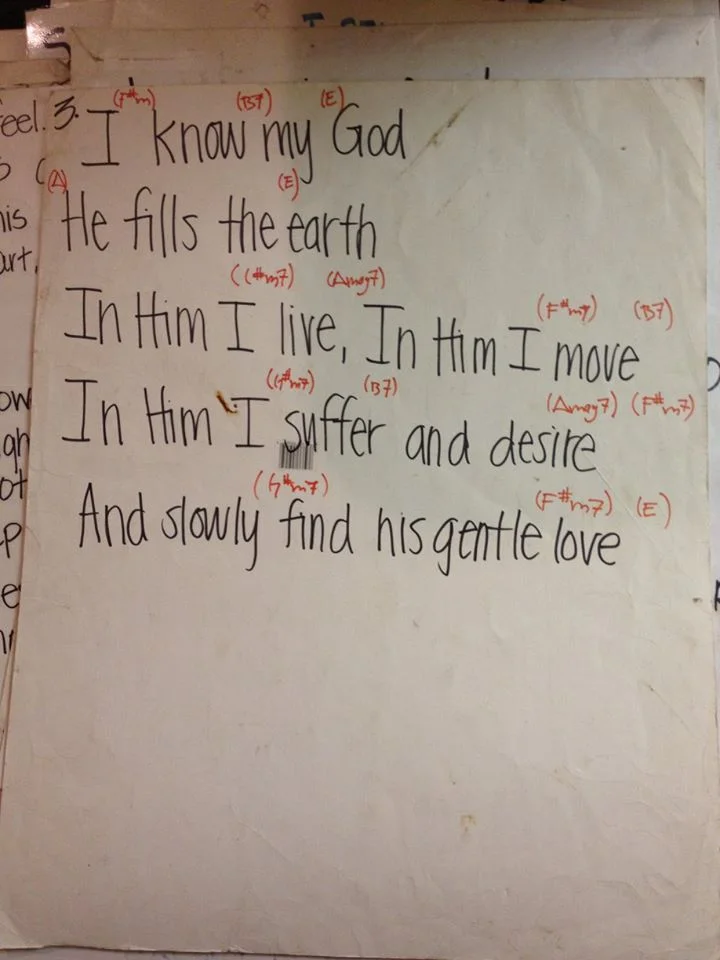 (F#m) (B7) (E)
3. I know my God
(A) (E)
He fills the earth
(C#m7) (Amaj7) (F#m7) (B7)
In Him I live, In Him I move
(G#m7) (B7) (Amaj7) (F#m7)
In Him I suffer and desire
(G#m7) (F#m7) (E)
And slowly find his gentle love
eel.
his